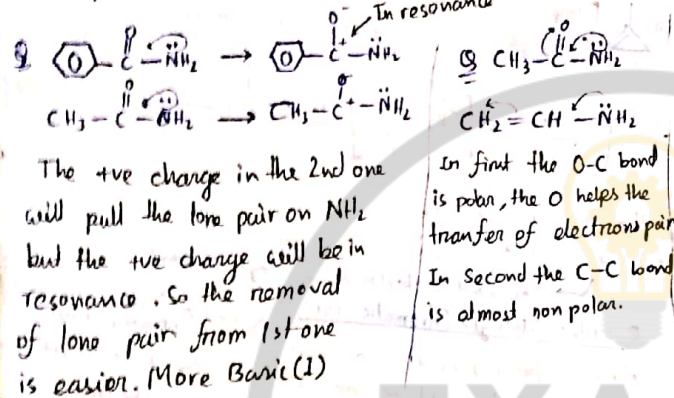 In resonance
Q C - N̈H₂ → C⁺ - N̈H₂
O O⁻
CH₃ - C - N̈H₂ → CH₃ - C⁺ - N̈H₂
O O⁻
The +ve charge in the 2nd one
will pull the lone pair on NH₂
but the +ve charge will be in
resonance. So the removal
of lone pair from 1st one
is easier. More Basic (1)
Q CH₃ - C - N̈H₂
O
CH₂ = CH - N̈H₂
In first the O-C bond
is polar, the O helps the
tranfer of electrons pair
In Second the C-C bond
is almost non polar.